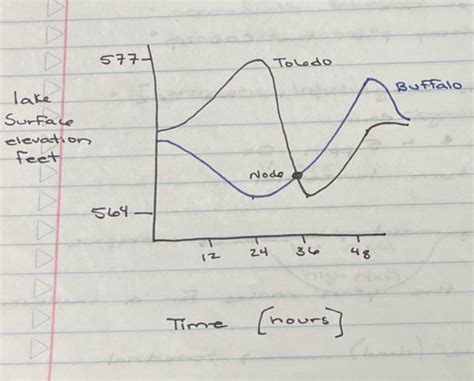 577
Toledo
Buffalo
lake
Surface
elevation
feet
Node
564
12 24 36 48
Time [hours]